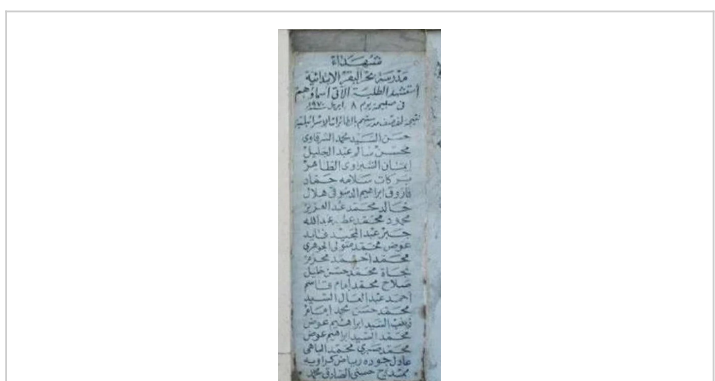 شهداء
مدرسة بحر البقر الابتدائية
استشهد الطلبة الآتى أسماؤهم
فى صبيحة يوم ٨ ابريل ١٩٧٠
نتيجة لقصف مدرستهم بالطائرات الاسرائيلية
حسن السيد محمد الشرقاوى
محسن سالم عبد الجليل
إيمان الشبراوى الطاهر
بركات سلامه حماد
فاروق ابراهيم الدسوقى هلال
خالد محمد عبد العزيز
محمود محمد عطيه عبدالله
جبر عبد المجيد فايد
عوض محمد متولى الجوهرى
محمد احمد محرم
نجاة محمد حسن خليل
صلاح محمد إمام قاسم
احمد عبد العال السيد
محمد حسن محمد إمام
زينب السيد ابراهيم عوض
محمد السيد ابراهيم عوض
محمد صبرى محمد الباهى
عادل جوده رياض كراويه
ممدوح حسنى الصادق محمد